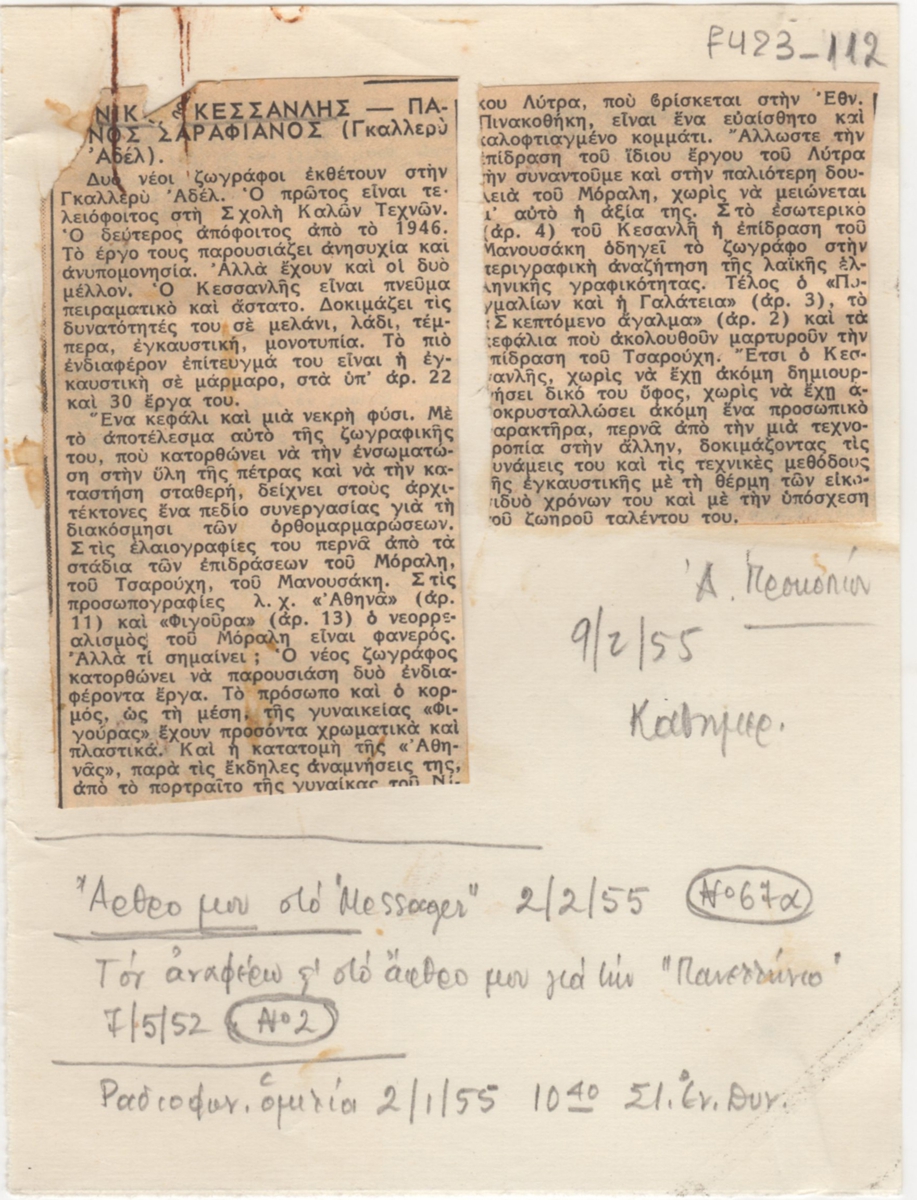 F423-112
ΝΙΚ. ΚΕΣΣΑΝΛΗΣ — ΠΑ-
ΝΟΣ ΣΑΡΑΦΙΑΝΟΣ (Γκαλλερὺ
Ἀδέλ).
Δυὸ νέοι ζωγράφοι ἐκθέτουν στὴν
Γκαλλερὺ Ἀδέλ. Ὁ πρῶτος εἶναι τε-
λειόφοιτος στὴ Σχολὴ Καλῶν Τεχνῶν.
Ὁ δεύτερος ἀπόφοιτος ἀπὸ τὸ 1946.
Τὸ ἔργο τους παρουσιάζει ἀνησυχία καὶ
ἀνυπομονησία. Ἀλλὰ ἔχουν καὶ οἱ δυὸ
μέλλον. Ὁ Κεσσανλῆς εἶναι πνεῦμα
πειραματικὸ καὶ ἄστατο. Δοκιμάζει τὶς
δυνατότητές του σὲ μελάνι, λάδι, τέμ-
περα, ἐγκαυστική, μονοτυπία. Τὸ πιὸ
ἐνδιαφέρον ἐπίτευγμά του εἶναι ἡ ἐγ-
καυστικὴ σὲ μάρμαρο, στὰ ὑπ' ἀρ. 22
καὶ 30 ἔργα του.
Ἕνα κεφάλι καὶ μιὰ νεκρὴ φύσι. Μὲ
τὸ ἀποτέλεσμα αὐτὸ τῆς ζωγραφικῆς
του, ποὺ κατορθώνει νὰ τὴν ἐνσωματώ-
ση στὴν ὕλη τῆς πέτρας καὶ νὰ τὴν κα-
ταστήση σταθερή, δείχνει στοὺς ἀρχι-
τέκτονες ἕνα πεδίο συνεργασίας γιὰ τὴ
διακόσμησι τῶν ὀρθομαρμαρώσεων.
Στὶς ἐλαιογραφίες του περνᾶ ἀπὸ τὰ
στάδια τῶν ἐπιδράσεων τοῦ Μόραλη,
τοῦ Τσαρούχη, τοῦ Μανουσάκη. Στὶς
προσωπογραφίες λ.χ. «Ἀθηνᾶ» (ἀρ.
11) καὶ «Φιγοῦρα» (ἀρ. 13) ὁ νεορρε-
αλισμὸς τοῦ Μόραλη εἶναι φανερός.
Ἀλλὰ τί σημαίνει; Ὁ νέος ζωγράφος
κατορθώνει νὰ παρουσιάση δυὸ ἐνδια-
φέροντα ἔργα. Τὸ πρόσωπο καὶ ὁ κορ-
μός, ὡς τὴ μέση, τῆς γυναικείας «Φι-
γούρας» ἔχουν προσόντα χρωματικὰ καὶ
πλαστικά. Καὶ ἡ κατατομὴ τῆς «Ἀθη-
νᾶς», παρὰ τὶς ἔκδηλες ἀναμνήσεις της,
ἀπὸ τὸ πορτραῖτο τῆς γυναίκας τοῦ Νί-
κου Λύτρα, ποὺ βρίσκεται στὴν Ἐθν.
Πινακοθήκη, εἶναι ἕνα εὐαίσθητο καὶ
καλοφτιαγμένο κομμάτι. Ἄλλωστε τὴν
πίδραση τοῦ ἴδιου ἔργου τοῦ Λύτρα
ὴν συναντοῦμε καὶ στὴν παλιότερη δου-
λειὰ τοῦ Μόραλη, χωρὶς νὰ μειώνεται
μ' αὐτὸ ἡ ἀξία της. Στὸ ἐσωτερικὸ
(ἀρ. 4) τοῦ Κεσανλῆ ἡ ἐπίδραση τοῦ
Μανουσάκη ὁδηγεῖ τὸ ζωγράφο στὴν
περιγραφικὴ ἀναζήτηση τῆς λαϊκῆς ἑλ-
ληνικῆς γραφικότητας. Τέλος ὁ «Πυ-
γμαλίων καὶ ἡ Γαλάτεια» (ἀρ. 3), τὸ
«Σκεπτόμενο ἄγαλμα» (ἀρ. 2) καὶ τὰ
κεφάλια ποὺ ἀκολουθοῦν μαρτυροῦν τὴν
πίδραση τοῦ Τσαρούχη. Ἔτσι ὁ Κεσ-
σανλῆς, χωρὶς νὰ ἔχῃ ἀκόμη δημιουρ-
γήσει δικό του ὕφος, χωρὶς νὰ ἔχῃ ἀ-
ποκρυσταλλώσει ἀκόμη ἕνα προσωπικὸ
χαρακτῆρα, περνᾶ ἀπὸ τὴν μιὰ τεχνο-
τροπία στὴν ἄλλην, δοκιμάζοντας τὶς
υνάμεις του καὶ τὶς τεχνικὲς μεθόδους
ῆς ἐγκαυστικῆς μὲ τὴ θέρμη τῶν εἰκο-
σιδυὸ χρόνων του καὶ μὲ τὴν ὑπόσχεση
τοῦ ζωηροῦ ταλέντου του.
Ἀ. Προκοπίου
9/2/55
Καθημερ.
Ἄρθρο μου στὸ "Messager" 2/2/55 Νο 67α
Τὸν ἀναφέρω κ' στὸ ἄρθρο μου γιὰ τὴν "Πανελλήνιο"
7/5/52 Νο 2
Ραδιοφων. ὁμιλία 2/1/55 10 40 Στ. Ἐν. Δυν.